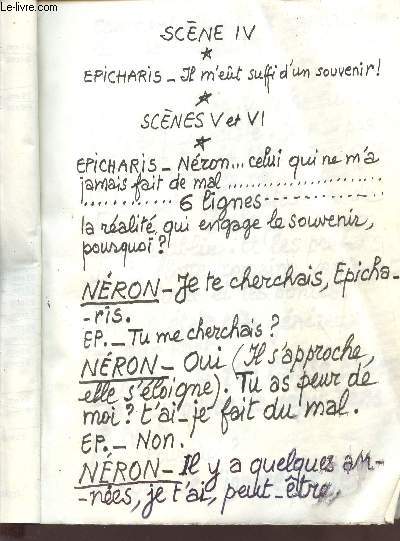 Le-livre.com
SCÈNE IV
*
EPICHARIS - Il m'eût suffi d'un souvenir!
*
SCÈNES V et VI
*
EPICHARIS - Néron... celui qui ne m'a
jamais fait de mal ......................
............ 6 lignes ...............
la réalité qui engage le souvenir,
pourquoi?
NÉRON - Je te cherchais, Epicha-
-ris.
EP. - Tu me cherchais?
NÉRON - Oui (Il s'approche,
elle s'éloigne). Tu as peur de
moi? t'ai-je fait du mal.
EP. - Non.
NÉRON - Il y a quelques an-
-nées, je t'ai, peut-être,